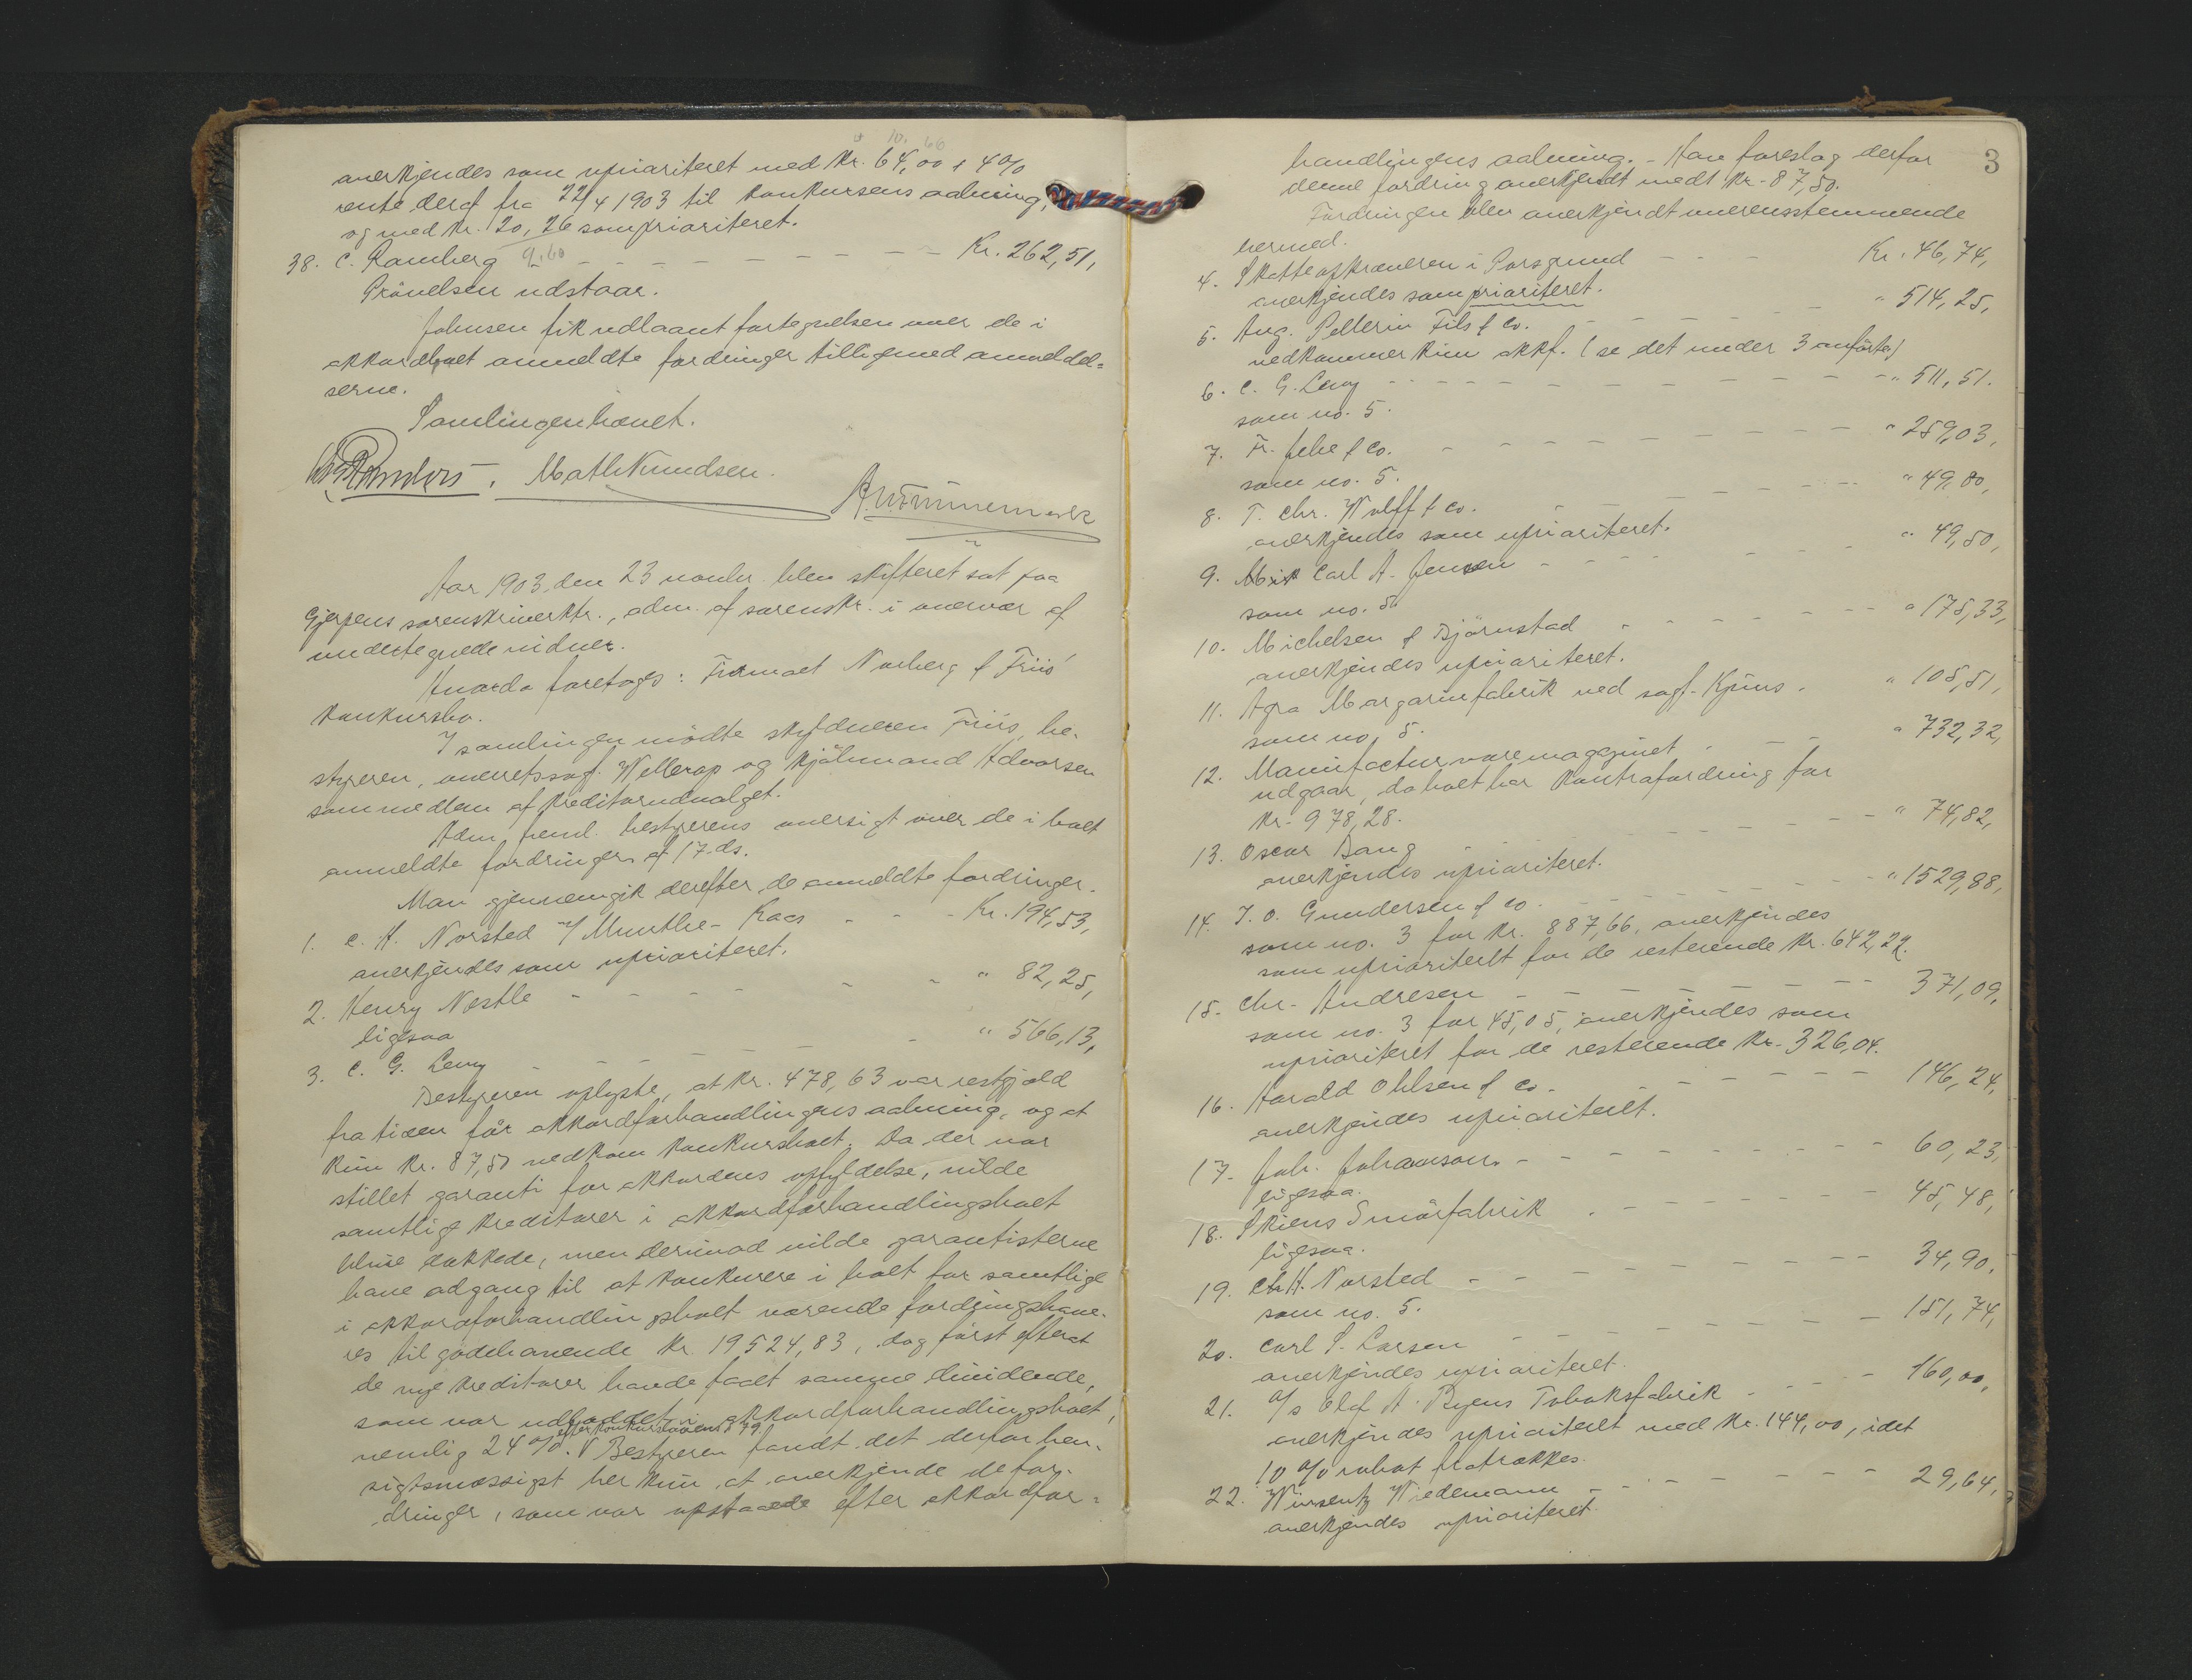 10.66
anerkjendes som uprioriteret med Kr. 64,00 + 4%
rente deraf fra 22/4 1903 til konkursens aabning,
og med Kr. 20,26 som prioriteret.
38. C. Ramberg 9.60 - - - - - - - - - Kr. 262,51,
Prövelsen udstaar.
Johnsen fik udlaant fortegnelsen over de i
akkordboet anmeldte fordringer tilligemed anmeldel=
serne.
Samlingen hævet.
Math Knudsen.
Aar 1903, den 23 novbr. blev skifteret sat paa
Gjerpens sorenskriverktr., adm. af sorenskr. i overvær af
undertegnede vidner.
Hvorda foretoges: Firmaet Norberg & Friis'
konkursbo.
I samlingen mödte skyldneren Friis, be-
styreren, overretssagf. Wellerop og kjöbmand Halvorsen
som medlem af kreditorudvalget.
Adm. freml. bestyrerens oversigt over de i boet
anmeldte fordringer af 17. ds.
Man gjennemgik derefter de anmeldte fordringer.
1. C. H. Norsted v/ Munthe-Kaas - - - Kr. 194,53,
anerkjendes som uprioriteret.
2. Henry Nestle - - - - - - " 82,25,
ligesaa
3. C. G. Levy - - - - - - " 566,13,
Bestyreren oplyste, at Kr. 478,63 var restgjæld
fra tiden för akkordforhandlingens aabning, og at
kun Kr. 87,50 vedkom konkursboet. Da der var
stillet garanti for akkordens opfyldelse, vilde
samtlige kreditorer i akkordforhandlingsboet
blive dækkede, men derimod vilde garantisterne
have adgang til at konkurere i boet for samtlige
i akkordforhandlingsboet værende fordringshave-
res tilgodehavende Kr. 19524,83, dog först efterat
de nye kreditorer havde faaet samme dividende,
som var udloddet i akkordforhandlingsboet,
efter konkurslovens § 79.
nemlig 24%. V Bestyreren fandt det derfor hen-
sigtsmæssigst her kun at anerkjende de for-
dringer, som var opstaaede efter akkordfor=
3
handlingens aabning. - Han foreslog derfor
denne fordring anerkjendt medt Kr. 87,50.
Fordringen blev anerkjendt overensstemmende
hermed.
4. Skatteopkræveren i Porsgrund - - - Kr. 46,74,
anerkjendes som prioriteret.
5. Aug. Pellerin Fils & Co. - - - - - " 514,25,
vedkommer kun akkf. (se det under 3 anförte)
6. C. G. Levy - - - - - - - - - " 511,51.
som no. 5.
7. Fr. Jebe & Co. - - - - - - - - " 259,03,
som no. 5.
8. T. Chr. Wulff & Co. - - - - - - " 49,80,
anerkjendes som uprioriteret.
9. Carl A. Jensen - - - - " 49,50,
som no. 5.
10. Michelsen & Björnstad - - - - - " 175,33,
anerkjendes uprioriteret.
11. Agra Margarinfabrik ved sagf. Kjöns. " 105,51,
som no. 5.
12. Manufacturvaremagazinet - - - " 732,32,
udgaar, da boet har kontrafordring for
Kr. 978,28.
13. Oscar Bang - - - - - - - - " 74,82,
anerkjendes uprioriteret.
14. J. O. Gundersen & Co. - - - - - - " 1529,88,
som no. 3 for Kr. 887,66, anerkjendes
som uprioritert for de resterende Kr. 642,22.
15. Chr. Andresen - - - - - - - - 371,09,
som no. 3 for 45,05, anerkjendes som
uprioriteret for de resterende Kr. 326,04.
16. Harald Ohlsen & Co. - - - - - - - 146,24,
anerkjendes uprioriteret.
17. Joh. Johannson. - - - - - - - - 60,23,
ligesaa.
18. Skiens Smörfabrik - - - - - - - 45,48,
ligesaa.
19. Ch. H. Norsted - - - - - - - - - 34,90,
som no. 5.
20. Carl S. Larsen - - - - - - - - 151,74,
anerkjendes uprioriteret.
21. A/s Olaf A. Byens Tobaksfabrik - - - - 160,00,
anerkjendes uprioriteret med Kr. 144,00, idet
10 % rabat fratrækkes.
22. Wiedemann - - - - - - - 29,64,
anerkjendes uprioriteret